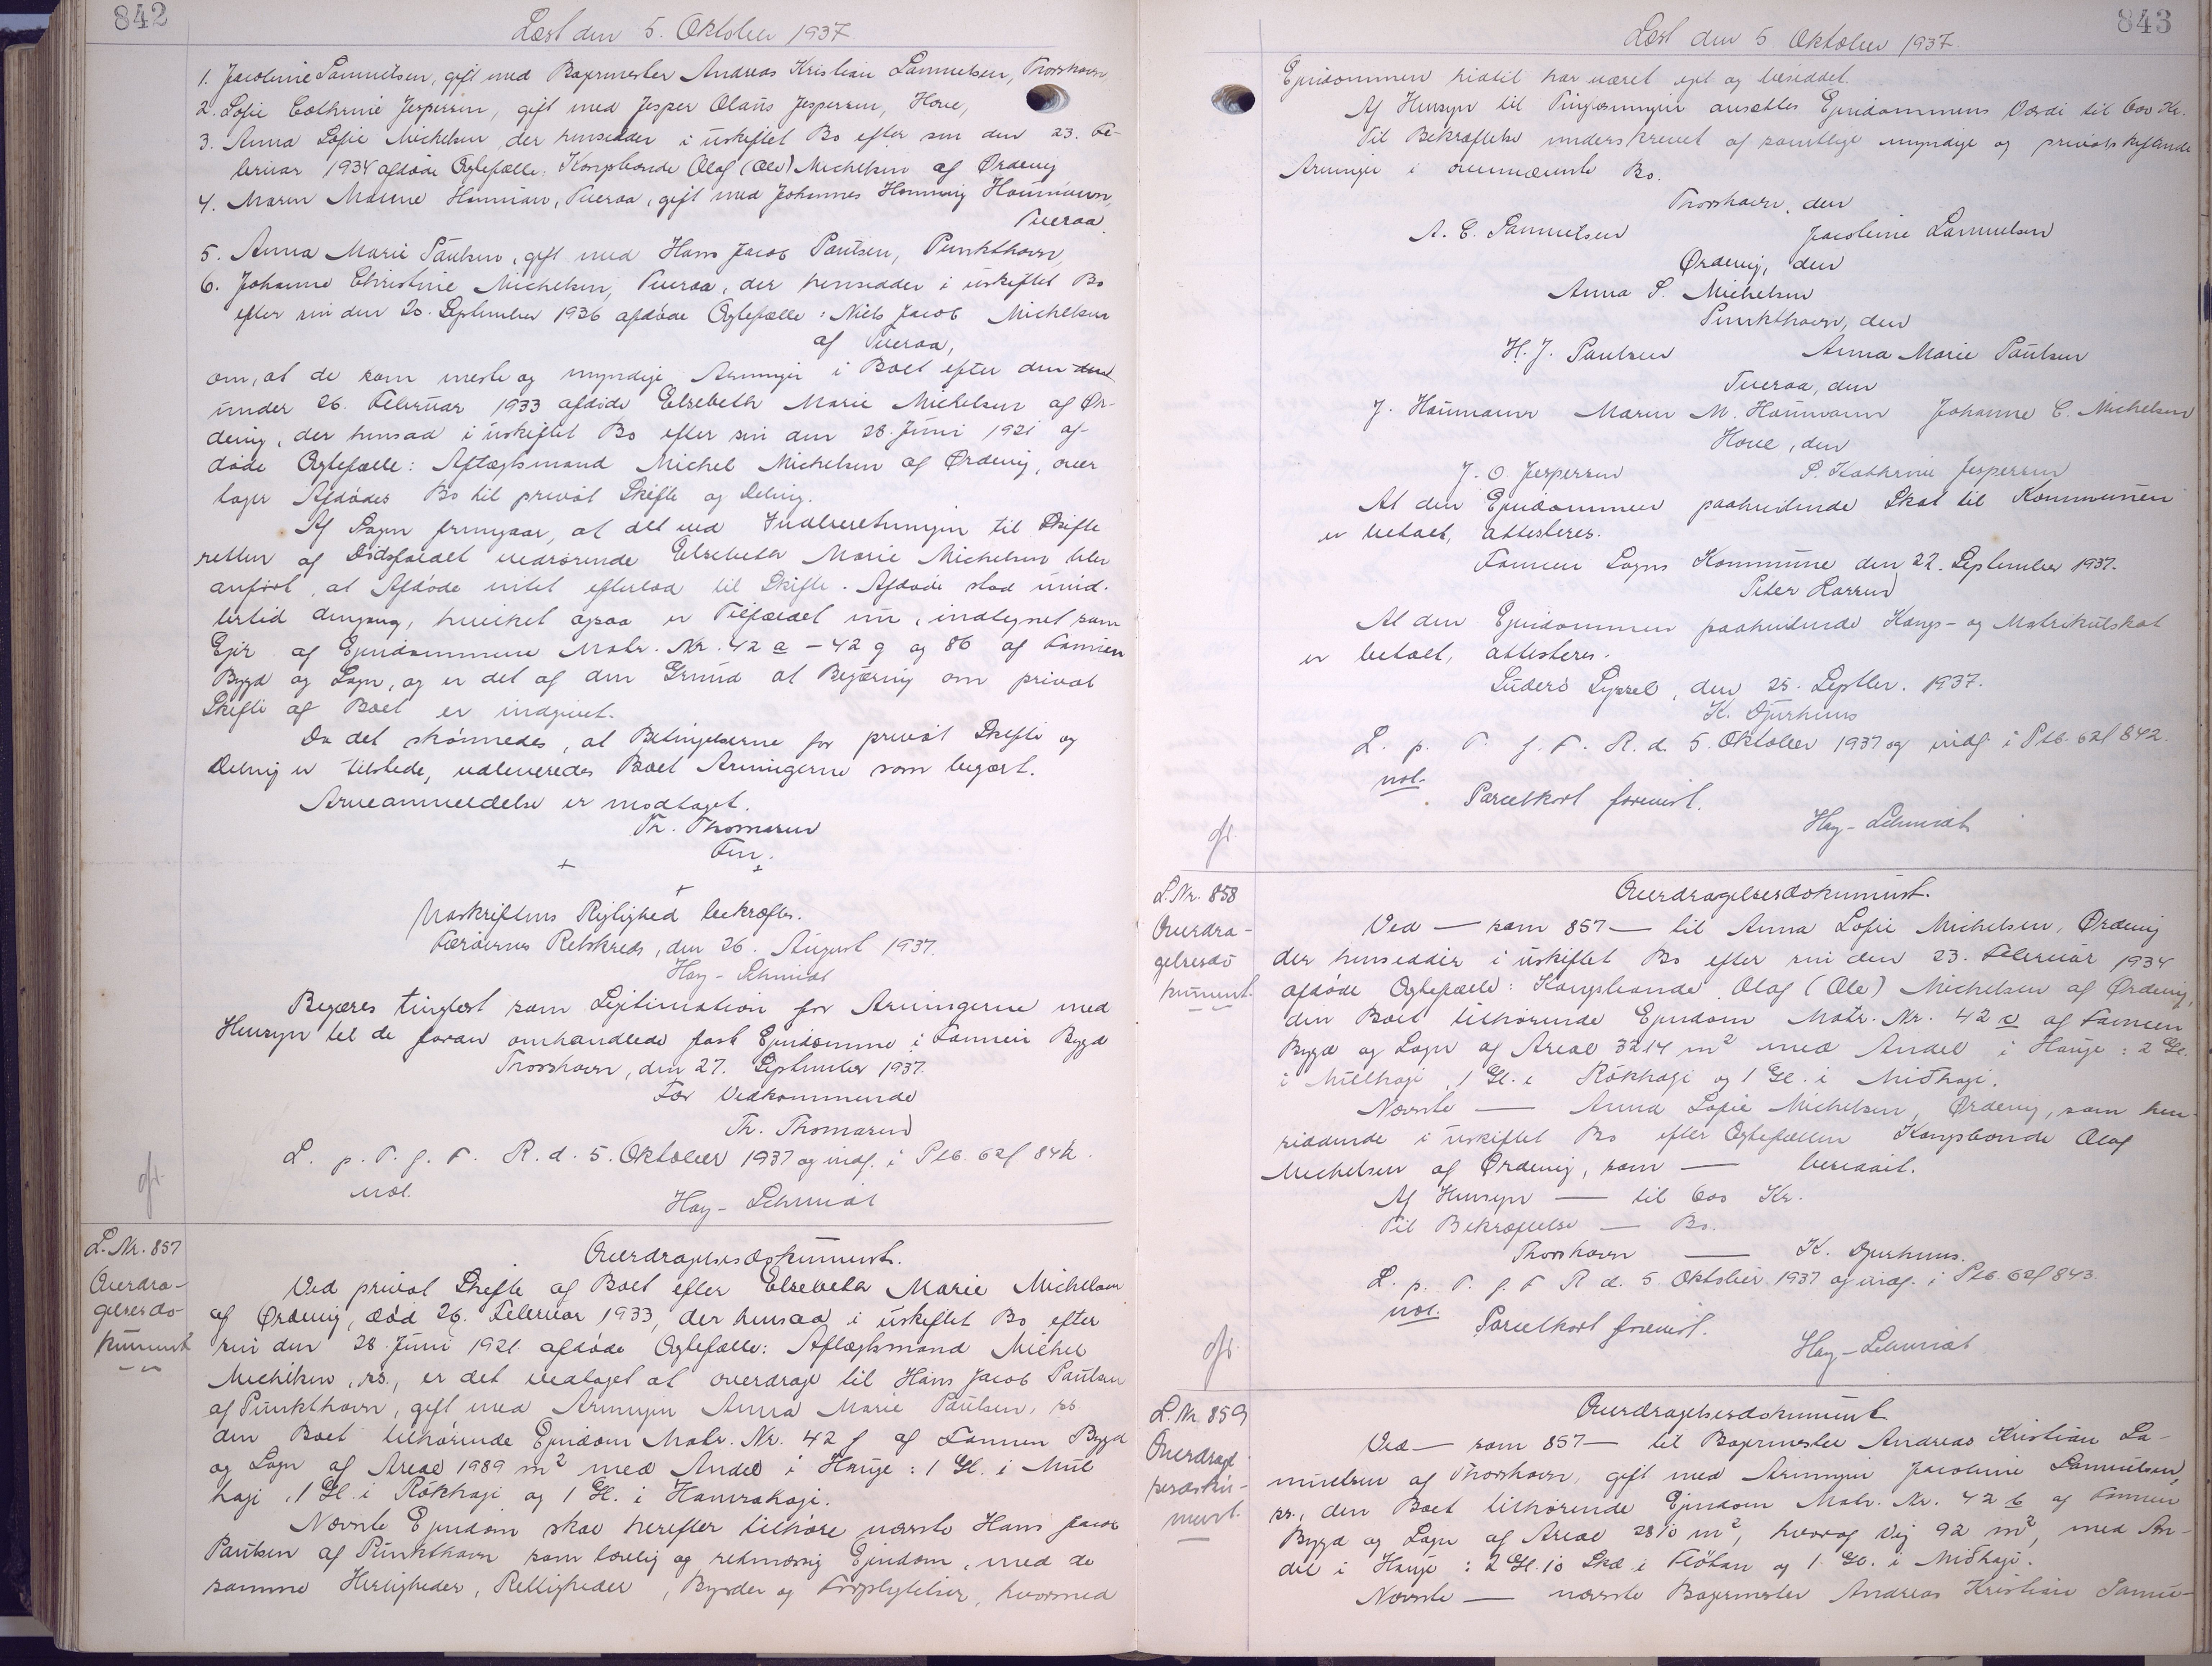 842
Læst den 5. Oktober 1937
1. Jacobine Samuelsen, gift med Bagermester Andreas Kristian Samuelsen, Thorshavn,
2. Sofie Cathrine Jespersen, gift med Jesper Olaus Jespersen, Hove,
3. Anna Sofie Michelsen der hensidder i uskiftet Bo efter sin den 23. Fe-
bruar 1934 afdøde Ægtefælle: Kongsbonde Olaf (Ole) Michelsen af Ørdevig
4. Maren Malene Haumann, Tveraa, gift med Johannes Henning Haumann,
Tveraa.
5. Anna Marie Paulsen, gift med Hans Jacob Paulsen, Punkthavn,
6. Johanne Christine Michelsen, Tveraa, der hensidder i uskiftet Bo
efter sin den 20. September 1936 afdøde Ægtefælle: Niels Jacob Michelsen
af Tveraa,
om, at de som neste og myndige Arvinger i Boet efter den den
under 26. Februar 1933 afdøde Elsebeth Marie Michelsen af Ør-
devig, der hensad i uskiftet Bo efter sin den 28. Juni 1921 af-
døde Ægtefælle: Aftægtsmand Michel Michelsen af Ørdevig, over
tager Afdødes Bo til privat Skifte og Deling.
Af Sagen fremgaar, at det ved Indberetningen til Skifte
retten af Dødsfaldet vedrørende Elsebeth Marie Michelsen blev
anført, at Afdøde intet efterlod til Skifte. Afdøde stod imid-
lertid dengang, hvilket ogsaa er Tilfældet nu, indtegnet som
Ejer af Ejendommene Matr. Nr. 42 a – 42 g og 86 af Famien
Bygd og Sogn, og er det af den Grund at Begæring om privat
Skifte af Boet er indgivet.
Da det skønnedes, at Betingelserne for privat Skifte og
Deling er tilstede, udleveredes Boet Arvingerne som begært.
Arveanmeldelse er modtaget.
Th. Thomasen
Fm.
Udskriftens Rigtighed bekræftes.
Færøernes Retskreds, den 26. August 1937.
Hay-Schmidt
Begæres tinglæst som Legitimation for Arvingerne med
Hensyn til de foran omhandlede fast Ejendomme i Famien Bygd
Thorshavn, den 27. September 1937.
For Vedkommende
Th. Thomasen
L. p. T. f. F. R. d. 5. Oktober 1937 og indf. i Ptb. 62 f 842.
Hay-Schmidt
L. Nr. 857
Overdra-
gelsesdo-
kument
Overdragelsesdokument.
Ved privat Skifte af Boet efter Elsebeth Marie Michelsen
af Ørdevig, død 26. Februar 1933, der hensad i uskiftet Bo efter
sin den 28. Juni 1921 afdøde Ægtefælle: Aftægtsmand Michel
Michelsen, ss., er det vedtaget at overdrage til Hans Jacob Paulsen
af Punkthavn, gift med Arvingen Anna Marie Paulsen, ss.
den Boet tilhørende Ejendom Matr. Nr. 42 f af Famien Bygd
og Sogn af Areal 1989 m² med Andel i Hauge: 1 Gl. i Mul
hagi, 1 Gl. i Rókhagi og 1 Gl. i Hamrahagi.
Nævnte Ejendom skal herefter tilhøre nævnte Hans Jacob
Paulsen af Punkthavn som lovlig og retmæssig Ejendom, med de
samme Herligheder, Rettigheder, Byrder og Forpligtelser, hvormed
843
Læst den 5 Oktober 1937.
Ejendommen hidtil har været ejet og besiddet.
Af Hensyn til Tinglæsningen ansættes Ejendommens Værdi til 600 Kr.
Til Bekræftelse underskrevet af samtlige myndige og privatskiftende
Arvinger i ovennævnte Bo.
Thorshavn, den
A. C. Samuelsen Jacobine Samuelsen
Ørdevig, den
Anna S. Michelsen
Punkthavn, den
H. J. Paulsen Anna Marie Paulsen
Tveraa, den
J. Haumann Maren M. Haumann Johanne C. Michelsen
Hove, den
J. O. Jespersen S. Kathrine Jespersen
At den Ejendommen paahvilende Skat til Kommunen
er betalt, attesteres.
Famien Sogns Kommune den 22. September 1937.
Peter Larsen
At den Ejendommen paahvilende Kongs- og Matrikulskat
er betalt, attesteres.
Suderø Syssel, den 25. Septbr. 1937.
K. Djurhuus
L. p. T. f. F. R. d. 5. Oktober 1937 og indf. i Ptb. 62 f 842.
Parcelkort forevist.
Hay-Schmidt
L. Nr. 858
Overdra-
gelsesdo-
kument.
Overdragelsesdokument.
Ved — som 857 — til Anna Sofie Michelsen, Ørdevig
der hensidder i uskiftet Bo efter sin den 23. Februar 1934
afdøde Ægtefælle: Kongsbonde Olaf (Ole) Michelsen af Ørdevig,
den Boet tilhørende Ejendom Matr. Nr. 42 c af Famien
Bygd og Sogn af Areal 3214 m² med Andel i Hauge: 2 Gl.
i Mulhagi, 1 Gl. i Rókhagi og 1 Gl. i Miðhagi.
Nævnte — Anna Sofie Michelsen, Ørdevig, som hen-
siddende i uskiftet Bo efter Ægtefællen Kongsbonde Olaf
Michelsen af Ørdevig, som — besiddet.
Af Hensyn — til 600 Kr.
Til Bekræftelse — Bo.
Thorshavn — K. Djurhuus.
L. p. T. f. F R d. 5. Oktober 1937 og indf. i Ptb. 62 f 843.
Parcelkort forevist.
Hay-Schmidt
L. Nr. 859
Overdragel-
sesdoku-
ment.
Overdragelsesdokument
Ved — som 857 — til Bagermester Andreas Kristian Sa-
muelsen af Thorshavn, gift med Arvingen Jacobine Samuelsen,
ss., den Boet tilhørende Ejendom Matr. Nr. 42 b af Famien
Bygd og Sogn af Areal 2810 m², hvoraf Vej 92 m², med An-
del i Hauge: 2 Gl. 10 Skd. i Fløtan og 1 Gl. i Miðhagi.
Nævnte — nævnte Bagermester Andreas Kristian Samu-